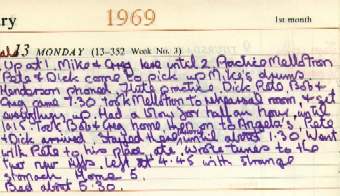 ry 1969 1st month
13 MONDAY (13–352 Week No. 3)
Up at 1. Mike & Greg here until 2 Practice Mellotron
Pete & Dick come to pick up Mike's drums.
Henderson phoned. Flute practice. Dick Pete Bob &
Greg came 7.30 took Mellotron to rehearsal room, & get
everything up. Had a blow for half an hour, until
10.15. Took Bob & Greg home, then on to Angela's, Pete
& Dick arrived stayed there until about 1.30 Went
with Pete to his Wrote tunes to the
two new Left at 4.45 with strange
stomach Home 5.
Bed about 5.30.